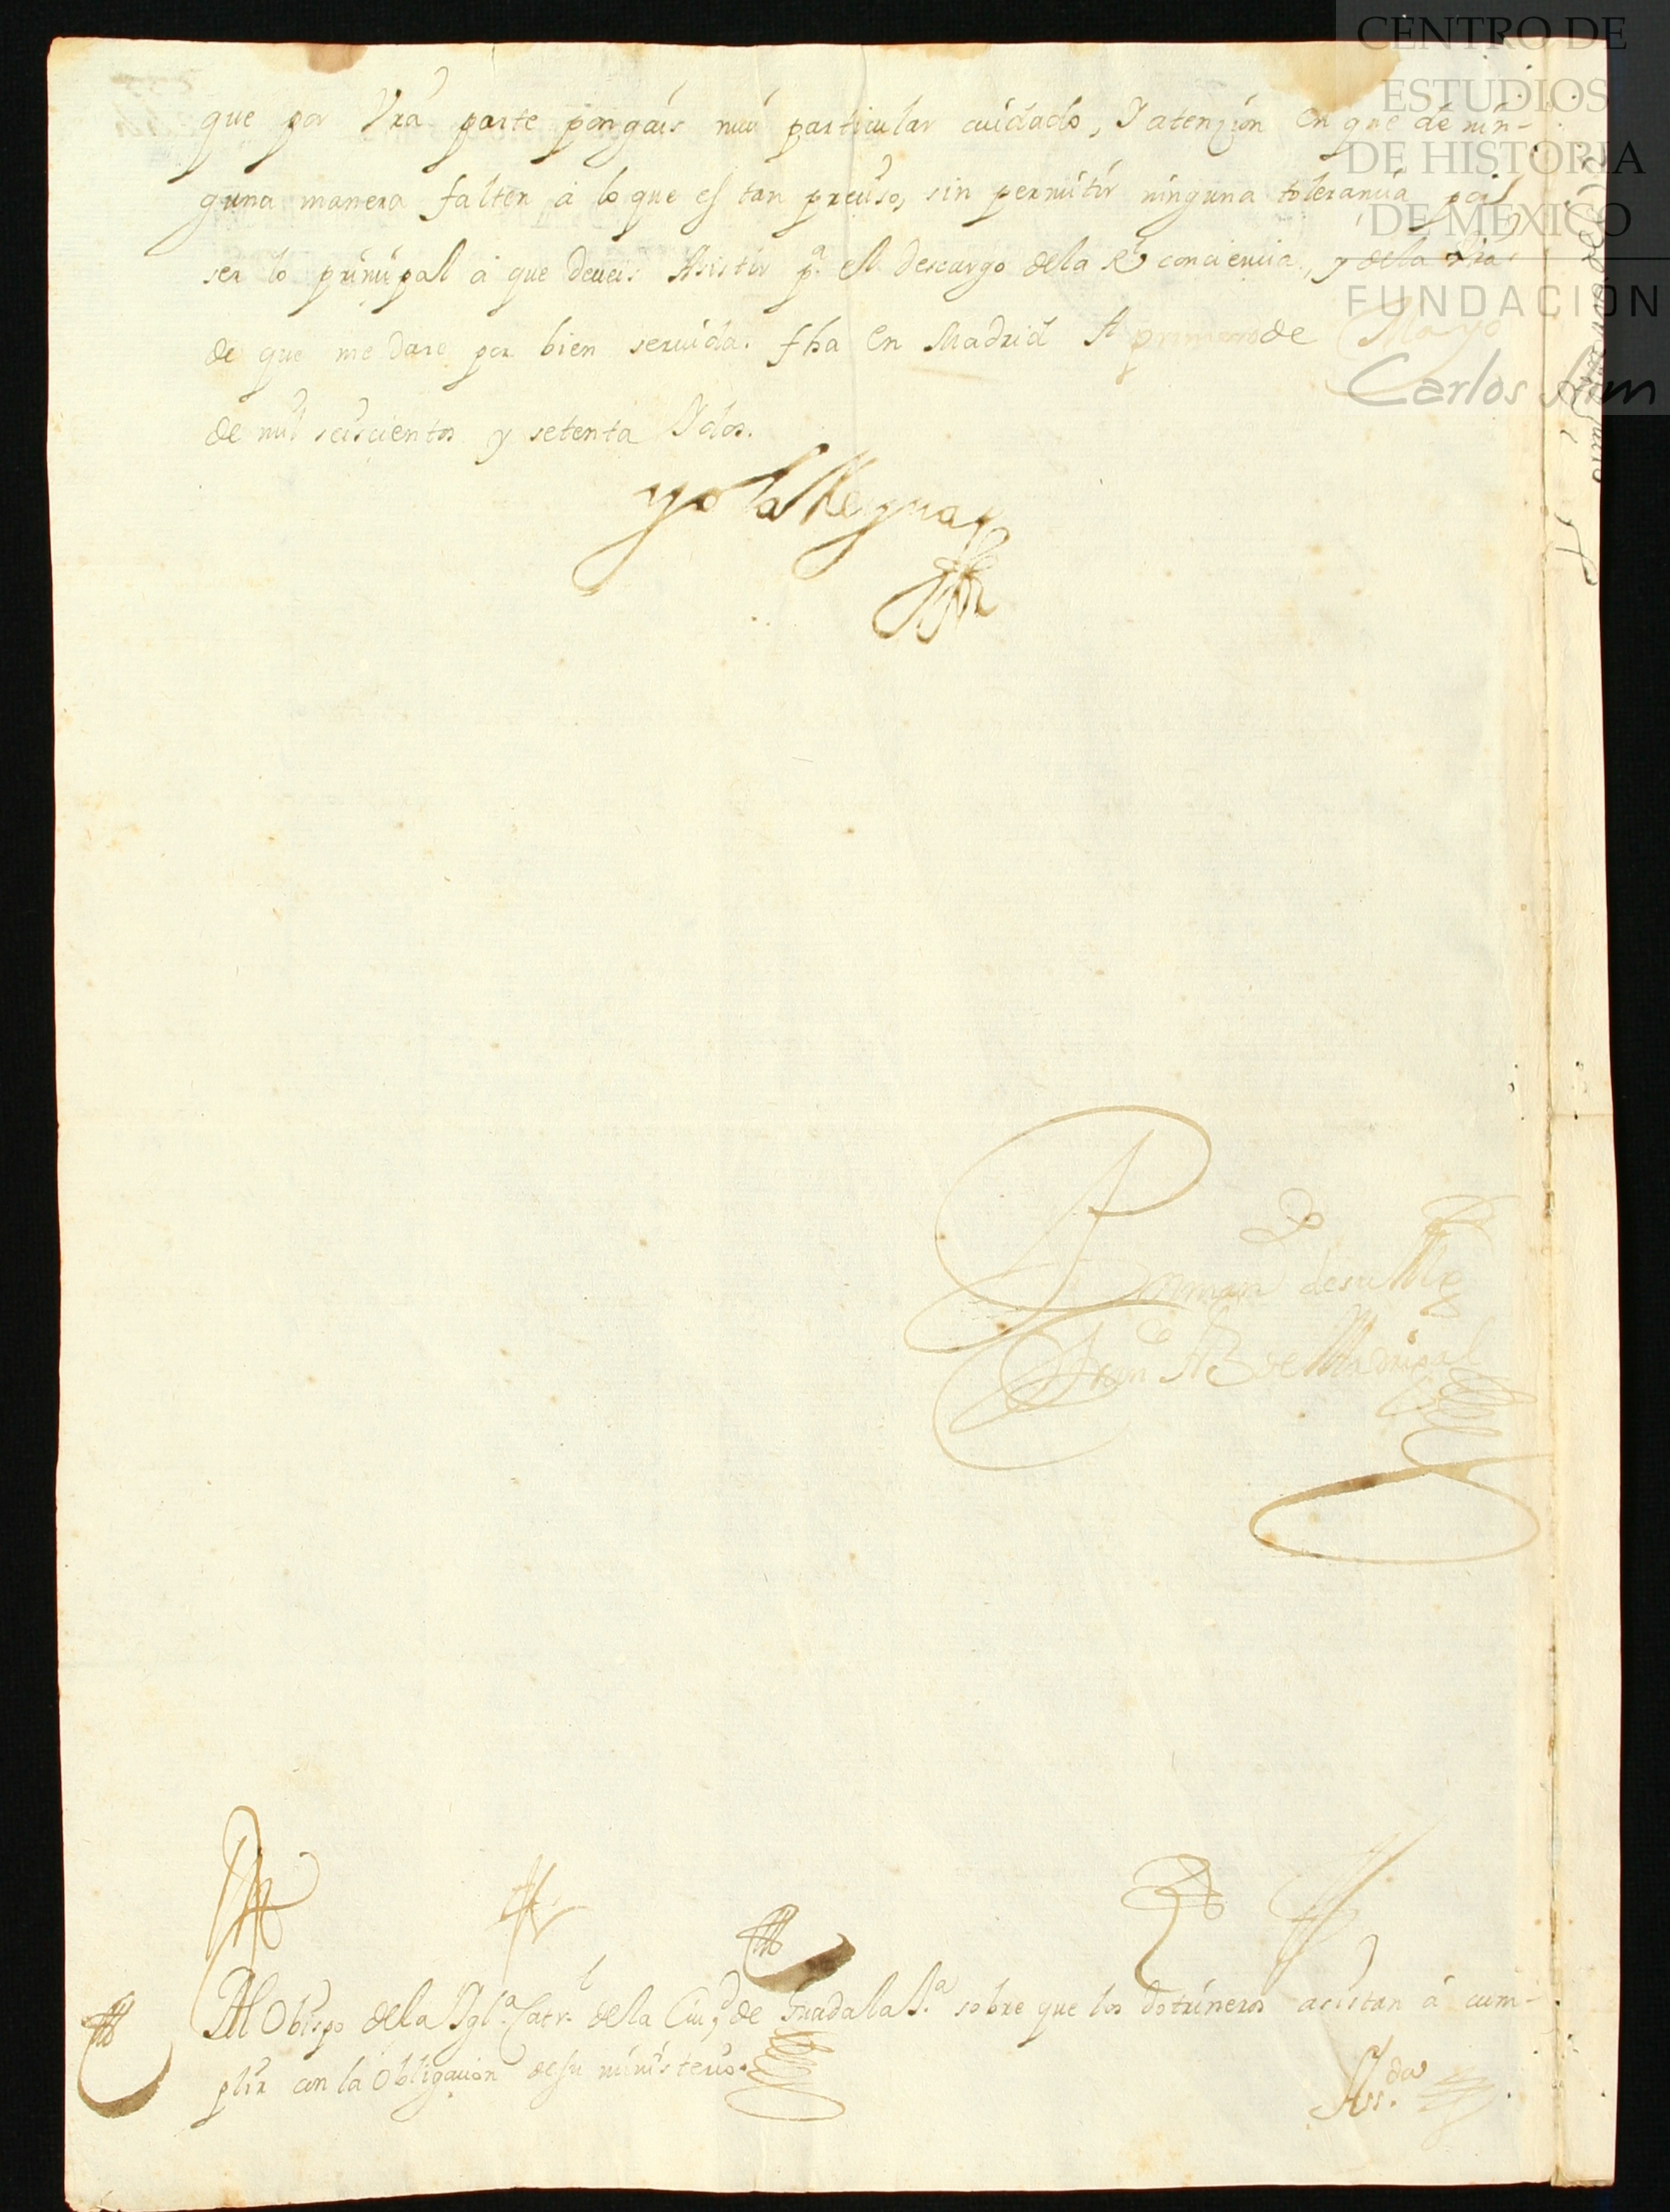 CENTRO DE
ESTUDIOS
DE HISTORIA
DE MÉXICO
FUNDACIÓN
Carlos Slim
que por Vra parte pongais mui particular cuidado, Y atençion en que de nin-
guna manera falten a lo que es tan preciso, sin permitir ninguna tolerancia por
ser lo prinçipal a que deueis Asistir pa. el descargo dela Rl conciencia, y dela Vra
de que me dare por bien seruida. fha en Madrid A primero de Mayo
de mil seiscientos y setenta Y dos.
yo la Reyna
Por mandado de su Mgd
Franco frz de Madrigal
Al Obispo dela Ygla. Catrl. dela Ciud de Guadalaxa. sobre que los dotrineros acistan á cum-
plir con la obligacion de su ministerio.